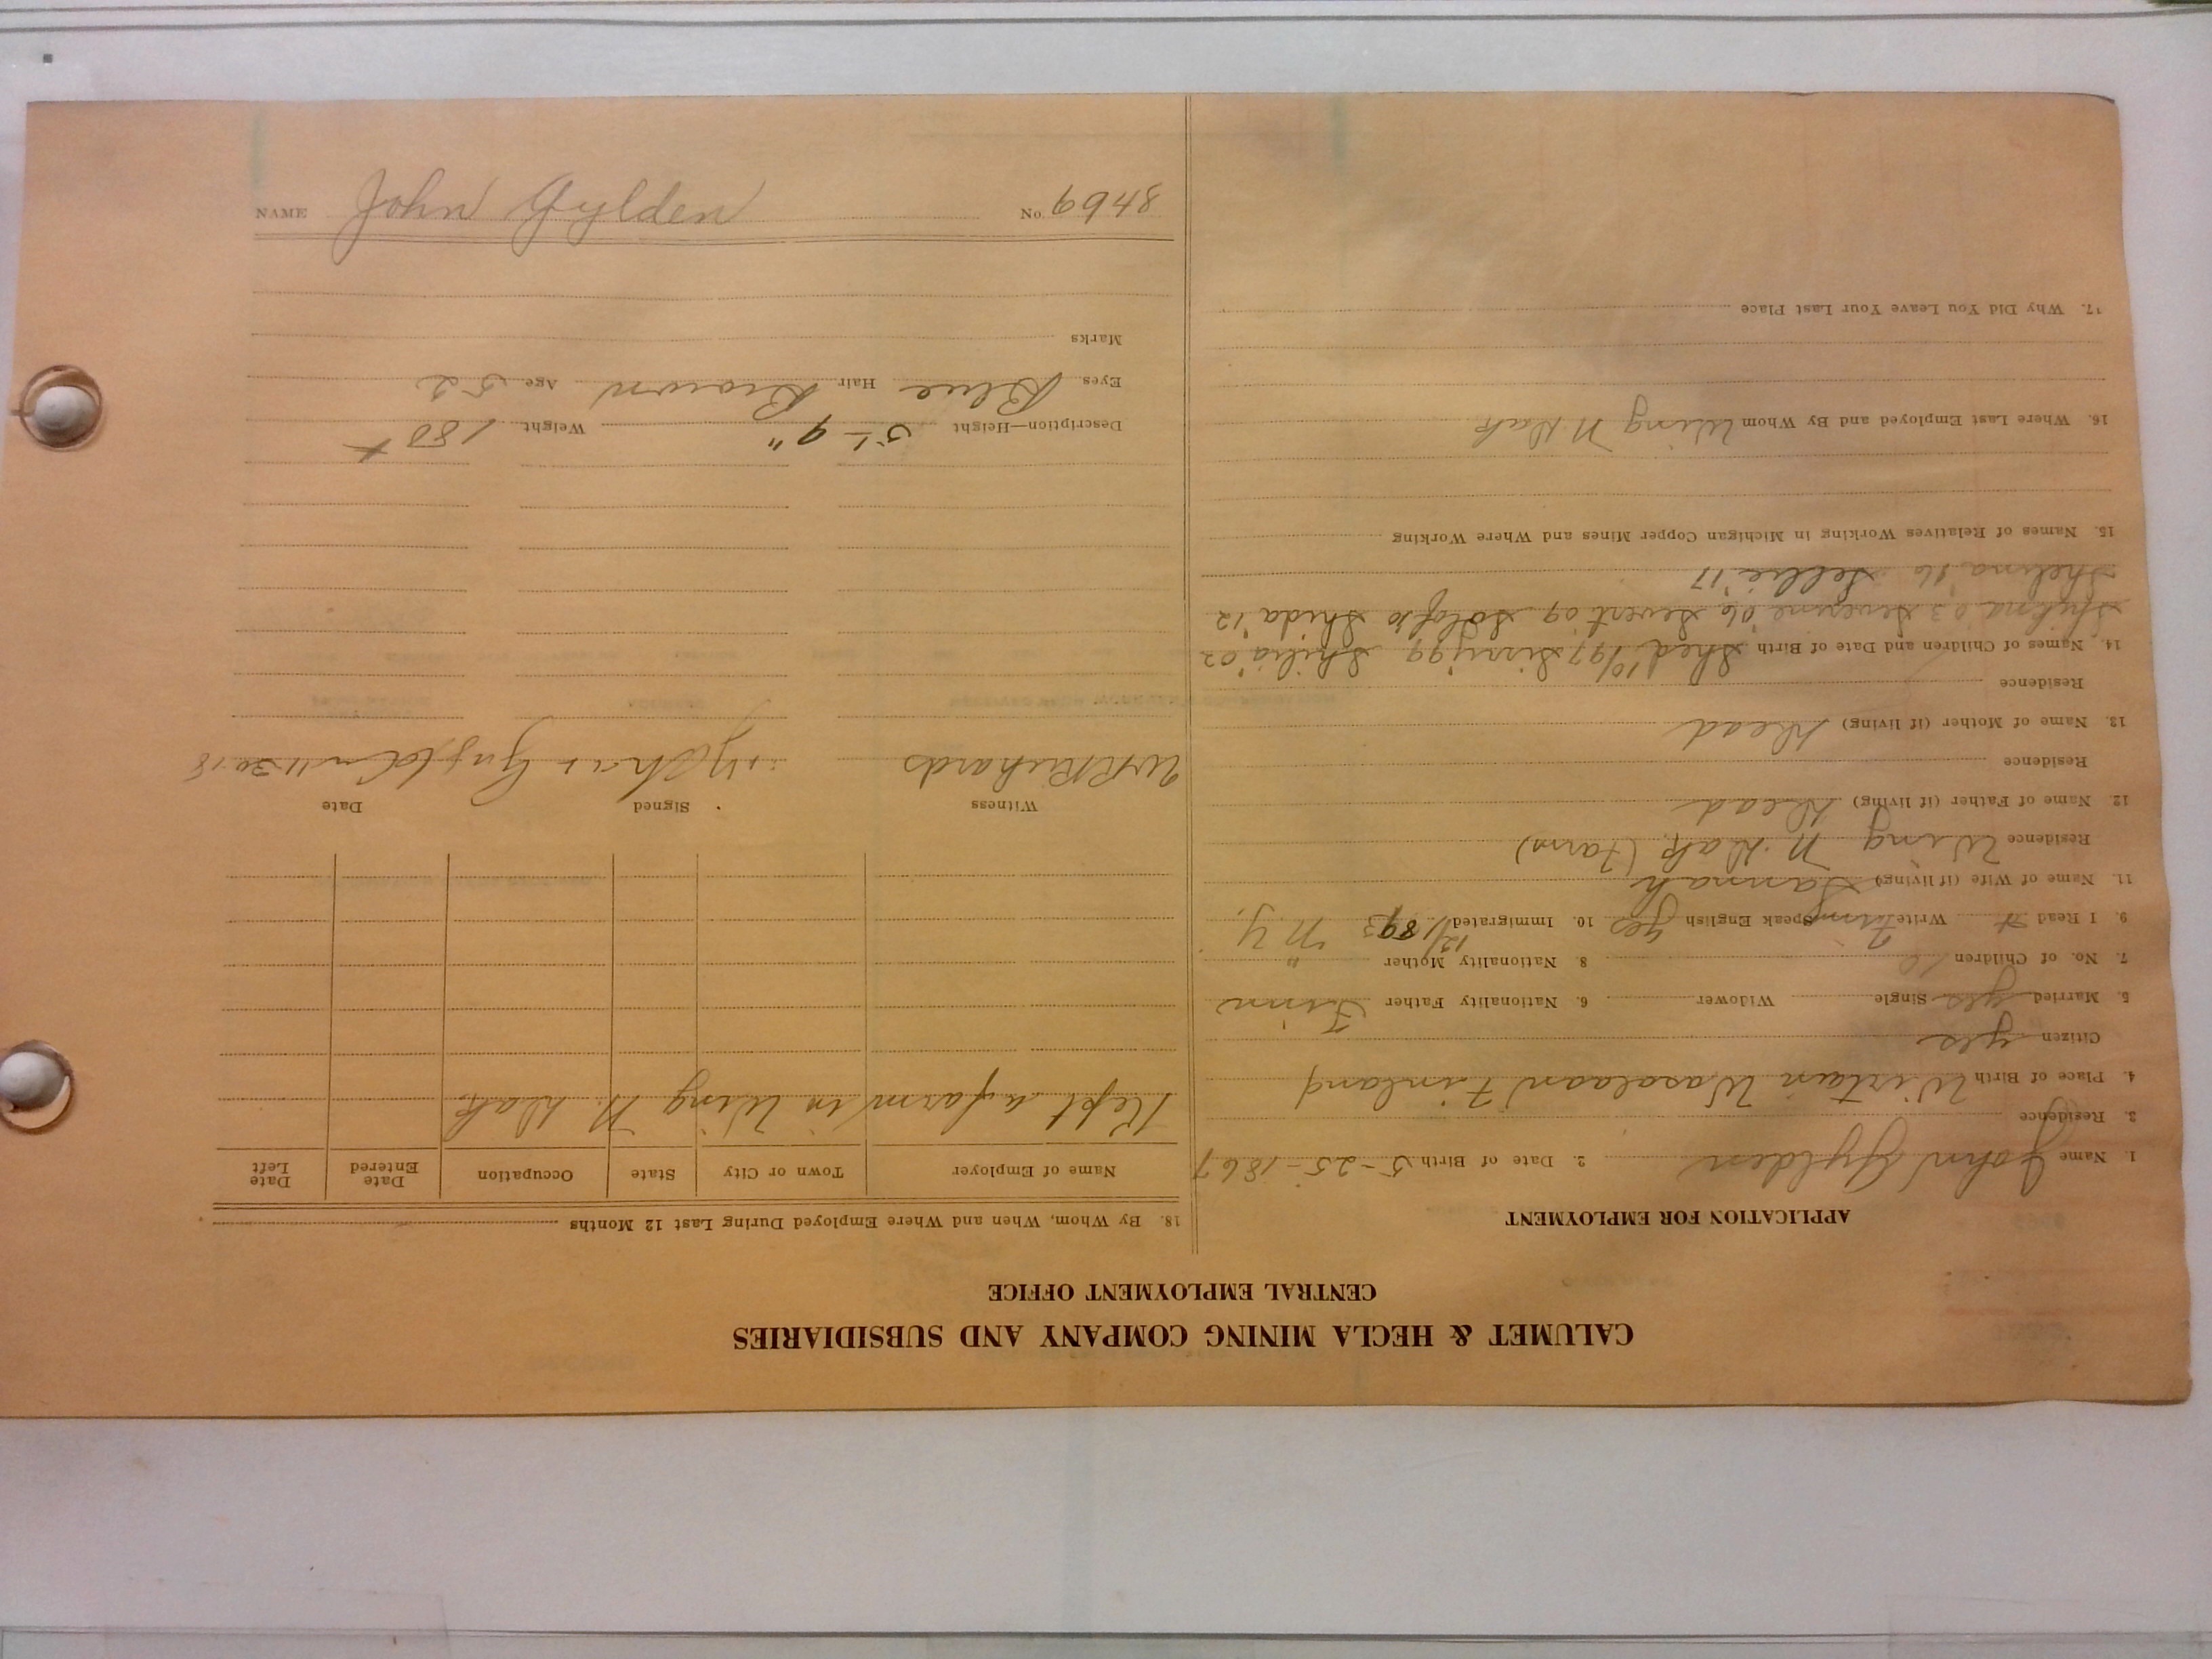 CALUMET & HECLA MINING COMPANY AND SUBSIDIARIES
CENTRAL EMPLOYMENT OFFICE
APPLICATION FOR EMPLOYMENT
1. Name John Gylden 2. Date of Birth 5-25-1867
3. Residence
4. Place of Birth Wirtain Wasalaan Finland
Citizen yes
5. Married yes Single Widower 6. Nationality Father Finn
7. No. of Children 10 8. Nationality Mother "
9. I Read + Write Finn Speak English yes 10. Immigrated 12/1893 N.Y.
11. Name of Wife (if living) Sannah
Residence Wing N. Dak. (Farm)
12. Name of Father (if living) Dead
Residence
13. Name of Mother (if living) Dead
Residence
14. Names of Children and Date of Birth 10/97 '99 '02
'03 '06 09 10 '12
'16 '17
15. Names of Relatives Working in Michigan Copper Mines and Where Working
16. Where Last Employed and By Whom Wing N. Dak
17. Why Did You Leave Your Last Place
18. By Whom, When and Where Employed During Last 12 Months
Name of Employer Town or City State Occupation Date Entered Date Left
Kept a farm in Wing N. Dak.
Witness Signed Date
W.R. Richards Gylden 11-30-18
Description—Height 5'-9" Weight 180 +
Eyes Blue Hair Brown Age 52
Marks
NAME John Gylden No. 8469